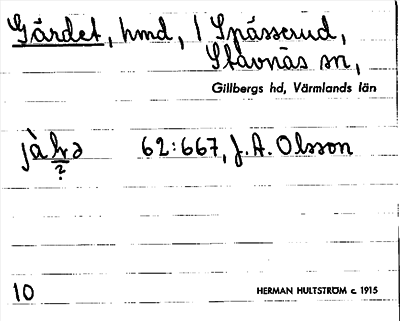 Gärdet, hmd, 1 Spässerud,
Stavnäs sn,
Gillbergs hd, Värmlands län
62:667, J.A. Olsson
?
10
HERMAN HULTSTRÖM c. 1915